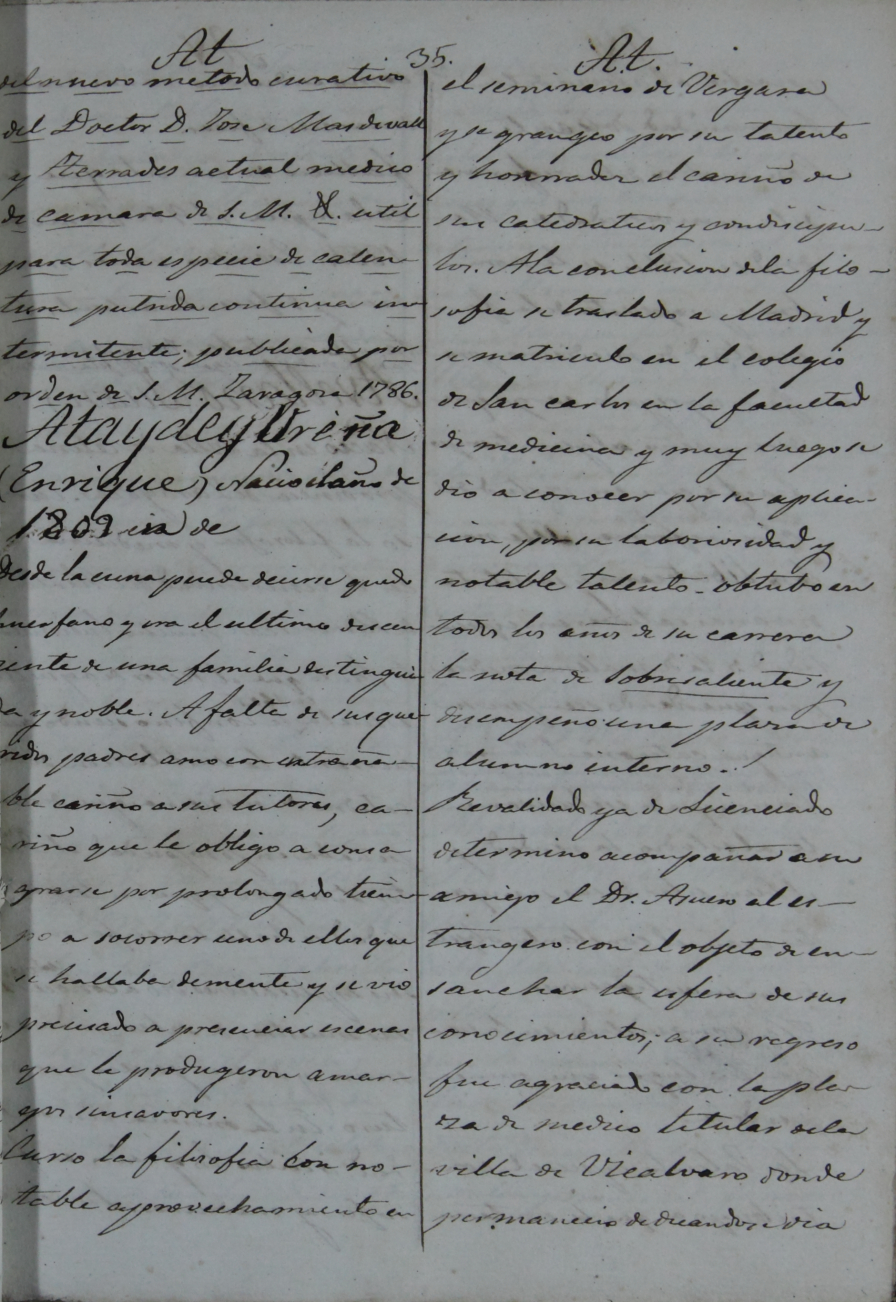 At
35.
At.
del nuevo metodo curativo
del Doctor D. Jose Masdevall
y Terrades actual medico
de camara de S. M. util
para toda especie de calen-
tura putrida continua in-
termitente; publicada por
orden de S. M. Zaragoza 1786.
Atayde y Ureña
(Enrique) Nacio el año de
1809 en de
Desde la cuna puede decirse quedo
huerfano y era el ultimo descen
diente de una familia distingui
da y noble. A falta de sus que
ridos padres amo con entraña-
ble cariño a sus tutores, ca-
riño que le obligo a consa
grarse por prolongado tiem
po a socorrer uno de ellos que
se hallaba demente y se vio
precisado a presenciar escenas
que le produgeron amar-
gos sinsavores.
Curso la filosofia con no-
table aprovechamiento en
el seminario de Vergara
y se grangeo por su talento
y honrradez el cariño de
sus catedraticos y condiscipu-
los. A la conclusion de la filo-
sofia se traslado a Madrid y
se matriculo en el colegio
de San carlos en la facultad
de medicina y muy luego se
dio a conocer por su aplica-
cion, por su laboriosidad y
notable talento - obtubo en
todos los años de su carrera
la nota de Sobresaliente y
desempeño una plaza de
alumno interno.
Revalidado ya de Licenciado
determino acompañar a su
amigo el Dr. Asuero al es-
trangero con el objeto de en-
sanchar la esfera de sus
conocimientos; a su regreso
fue agraciado con la pla-
za de medico titular de la
villa de Vicalvaro donde
permanecio dedicandose dia